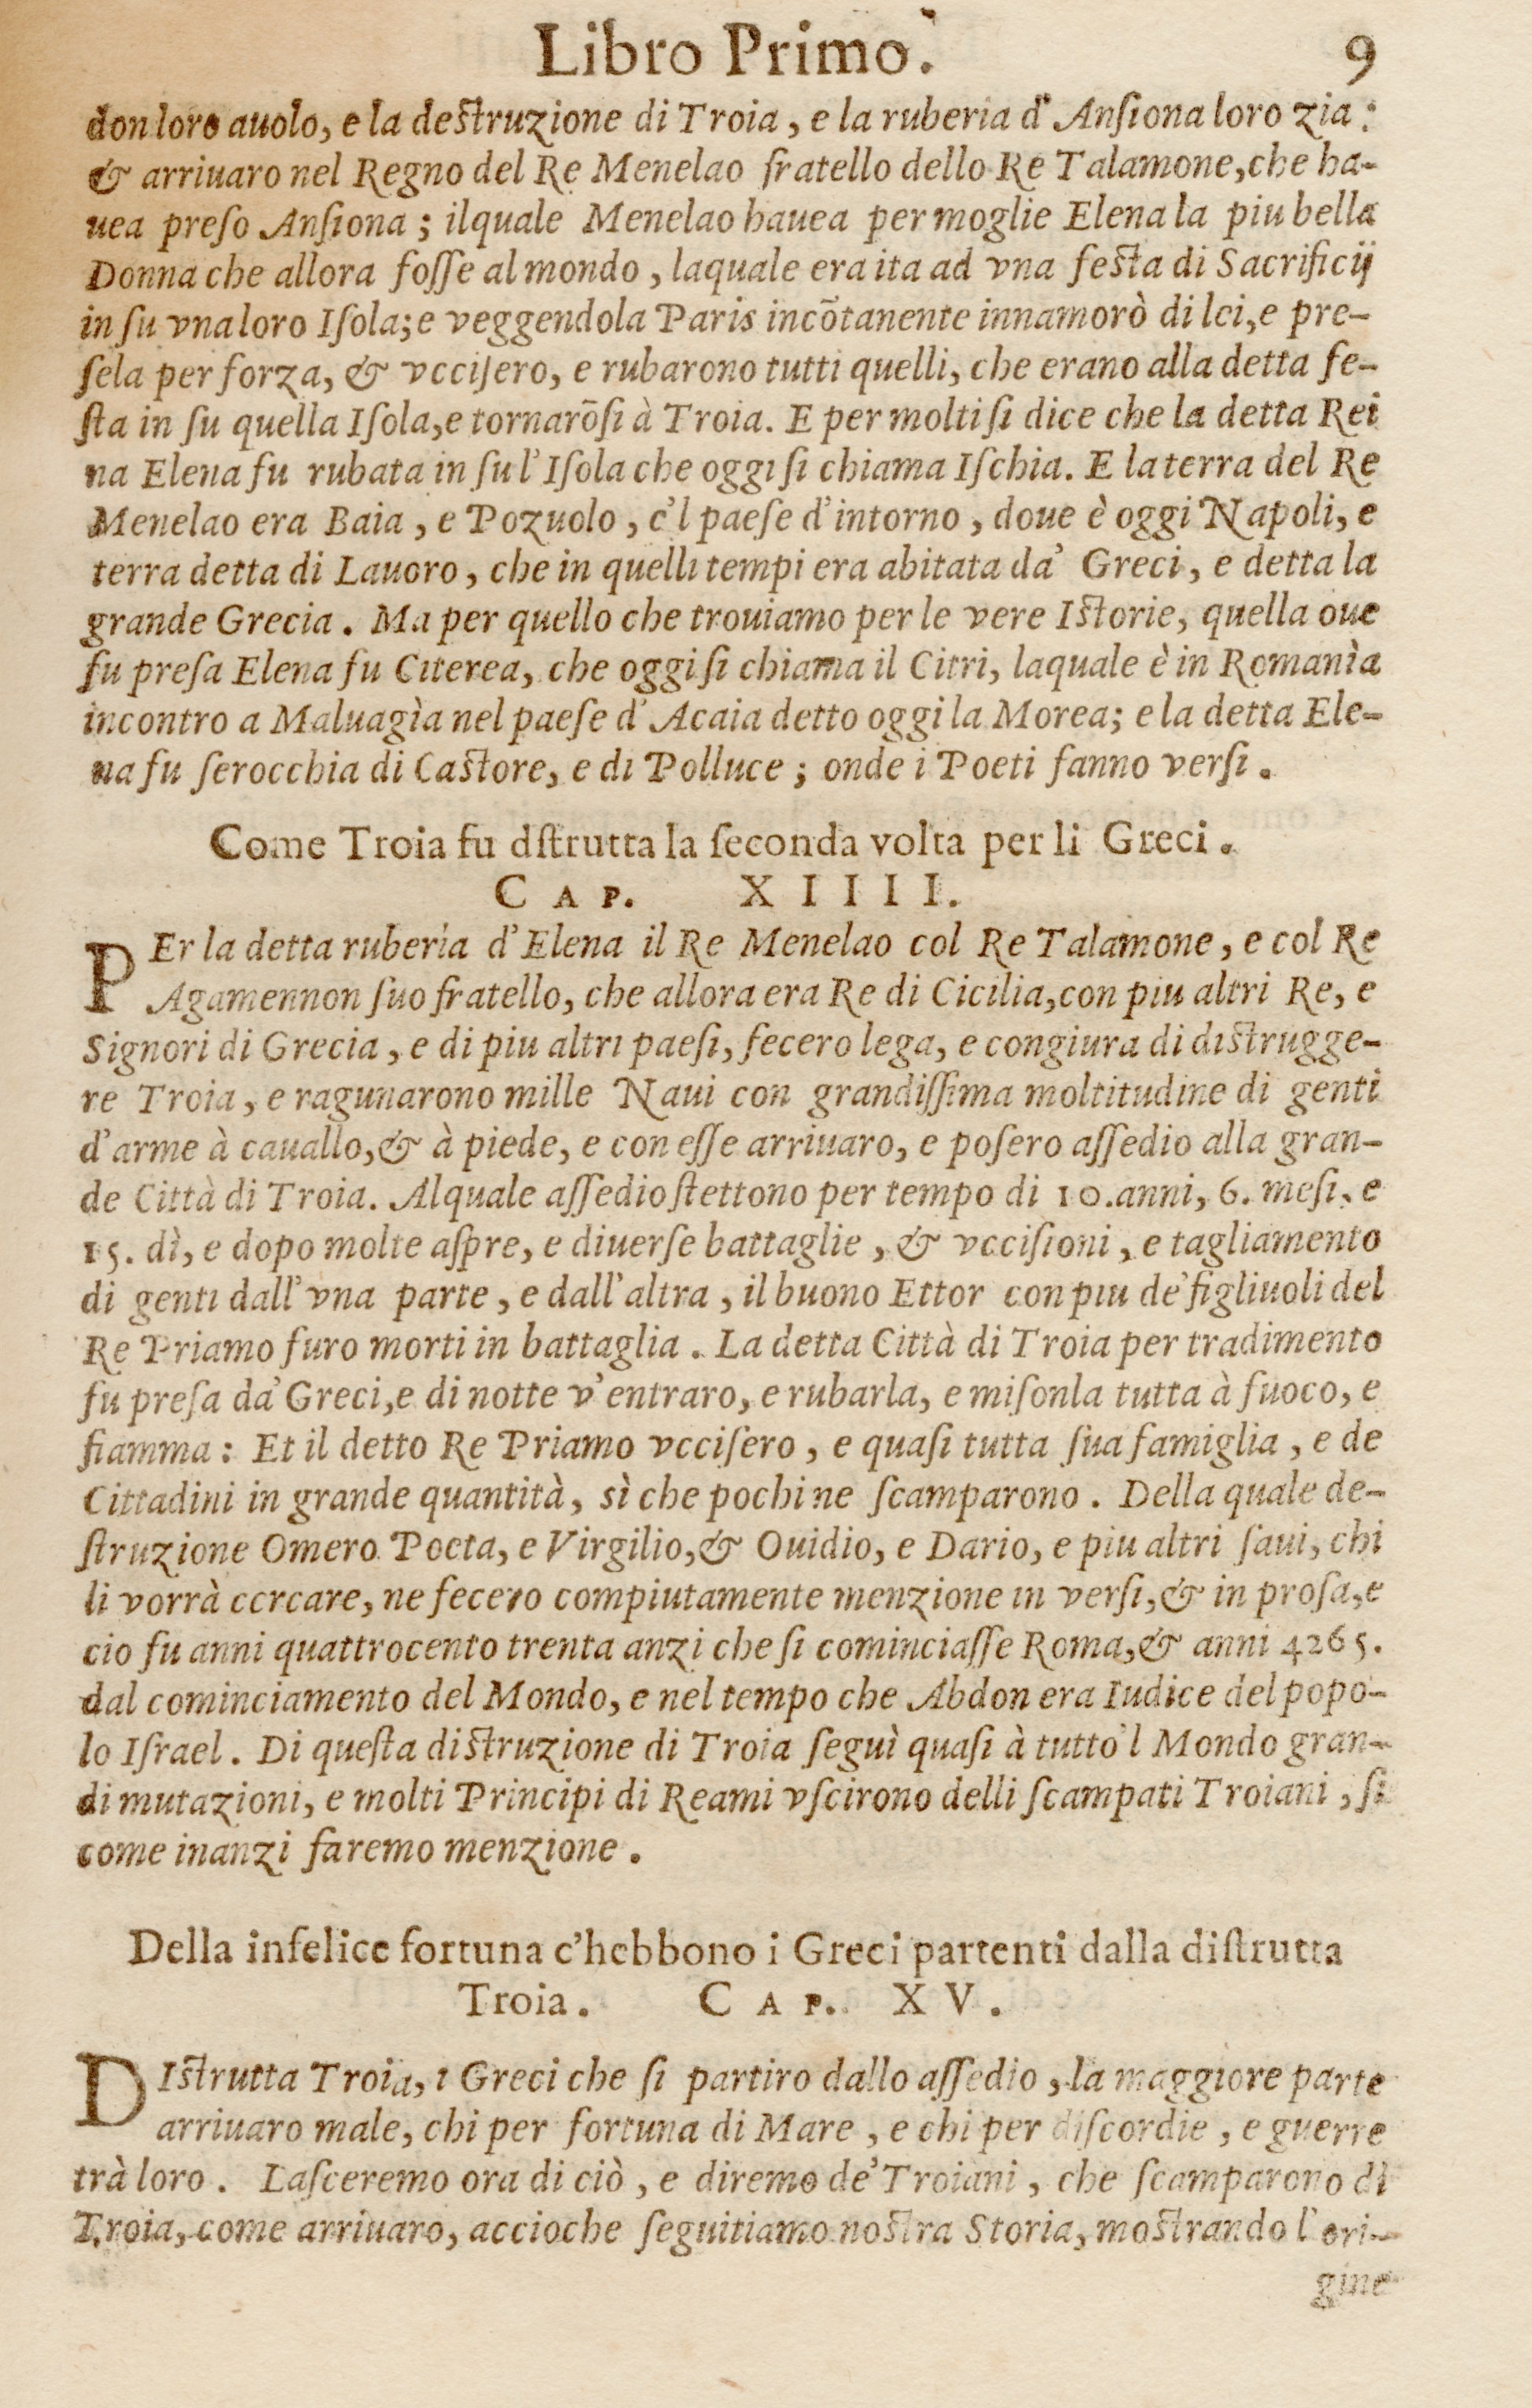 Libro Primo. 9
don loro auolo, e la destruzione di Troia, e la ruberia d'Ansiona loro zia:
& arriuaro nel Regno del Re Menelao fratello dello Re Talamone, che ha-
uea preſo Anſiona; ilquale Menelao hauea per moglie Elena la piu bella
Donna che allora foſſe al mondo, laquale era ita ad vna feſta di Sacrificij
in ſu vna loro Iſola; e veggendola Paris incōtanente innamorò di lei, e pre-
ſela per forza, & vcciſero, e rubarono tutti quelli, che erano alla detta fe-
ſta in ſu quella Iſola, e tornarōſi à Troia. E per molti ſi dice che la detta Rei
na Elena fu rubata in ſu l'Iſola che oggi ſi chiama Iſchia. E la terra del Re
Menelao era Baia, e Pozuolo, e'l paeſe d'intorno, doue è oggi Napoli, e
terra detta di Lauoro, che in quelli tempi era abitata da' Greci, e detta la
grande Grecia. Ma per quello che trouiamo per le vere Iſtorie, quella oue
fu preſa Elena fu Citerea, che oggi ſi chiama il Citri, laquale è in Romanìa
incontro a Maluagìa nel paeſe d'Acaia detto oggi la Morea; e la detta Ele-
na fu ſerocchia di Caſtore, e di Polluce; onde i Poeti fanno verſi.
Come Troia fu dſtrutta la ſeconda volta per li Greci.
CAP. XIIII.
PEr la detta ruberìa d'Elena il Re Menelao col Re Talamone, e col Re
Agamennon ſuo fratello, che allora era Re di Cicilia, con piu altri Re, e
Signori di Grecia, e di piu altri paeſi, fecero lega, e congiura di diſtrugge-
re Troia, e ragunarono mille Naui con grandiſſima moltitudine di genti
d'arme à cauallo, & à piede, e con eſſe arriuaro, e poſero aſſedio alla gran-
de Città di Troia. Alquale aſſedio ſtettono per tempo di 10. anni, 6. meſi, e
15. dì, e dopo molte aſpre, e diuerſe battaglie, & vcciſioni, e tagliamento
di genti dall'vna parte, e dall'altra, il buono Ettor con piu de' figliuoli del
Re Priamo furo morti in battaglia. La detta Città di Troia per tradimento
fu preſa da' Greci, e di notte v'entraro, e rubarla, e miſonla tutta à fuoco, e
fiamma: Et il detto Re Priamo vcciſero, e quaſi tutta ſua famiglia, e de
Cittadini in grande quantità, sì che pochi ne ſcamparono. Della quale de-
ſtruzione Omero Poeta, e Virgilio, & Ouidio, e Dario, e piu altri ſaui, chi
li vorrà cercare, ne fecero compiutamente menzione in verſi, & in proſa, e
cio fu anni quattrocento trenta anzi che ſi cominciaſſe Roma, & anni 4265.
dal cominciamento del Mondo, e nel tempo che Abdon era Iudice del popo-
lo Iſrael. Di queſta diſtruzione di Troia ſeguì quaſi à tutto'l Mondo gran-
di mutazioni, e molti Principi di Reami vſcirono delli ſcampati Troiani, ſi
come inanzi faremo menzione.
Della infelice fortuna c'hebbono i Greci partenti dalla diſtrutta
Troia. CAP. XV.
DIſtrutta Troia, i Greci che ſi partiro dallo aſſedio, la maggiore parte
arriuaro male, chi per fortuna di Mare, e chi per diſcordie, e guerre
trà loro. Laſceremo ora di ciò, e diremo de' Troiani, che ſcamparono di
Troia, come arriuaro, accioche ſeguitiamo noſtra Storia, moſtrando l'ori-
gine